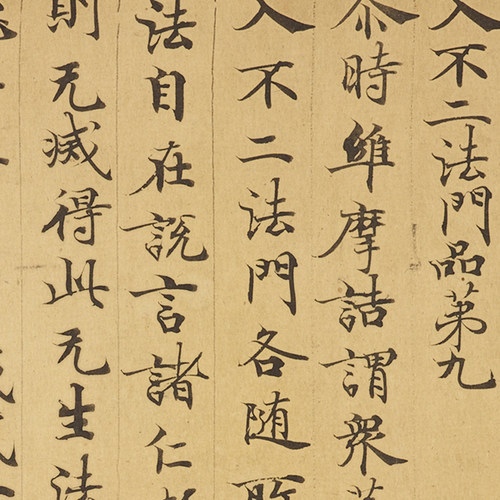 入不二法門品第九
尒時維摩詰謂衆
入不二法門各随所
法自在說言諸仁
則无滅得此无生法